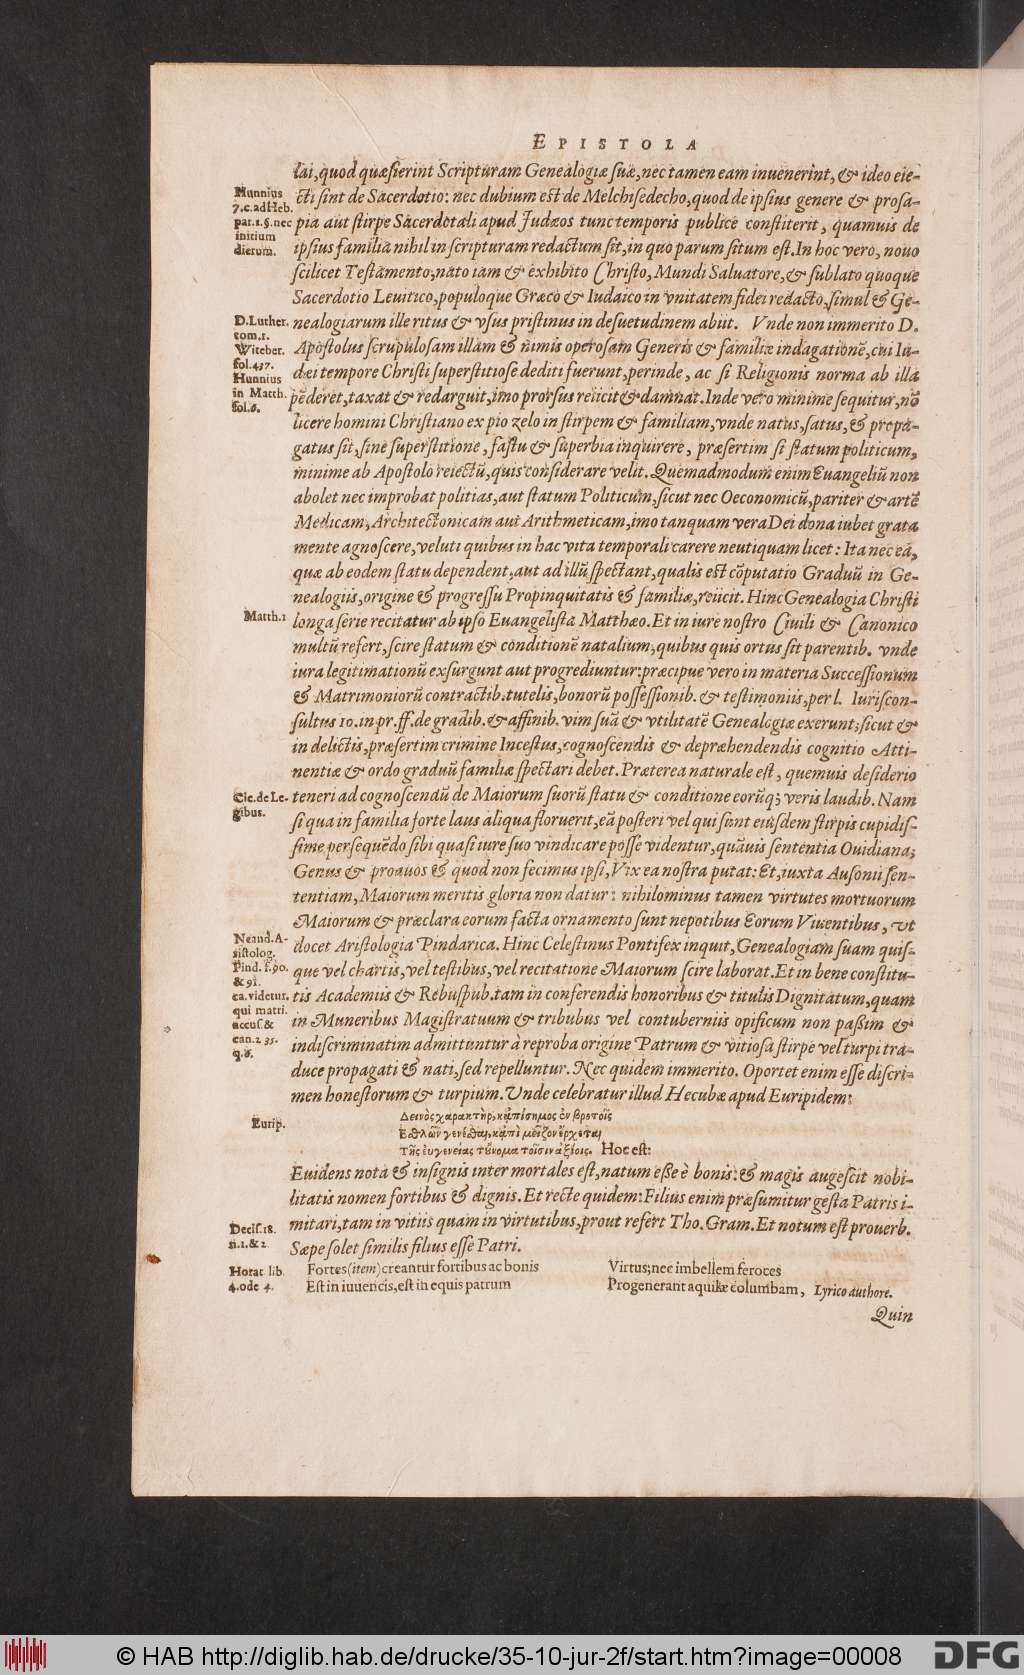 EPISTOLA
lai, quod quæsierint Scripturam Genealogiæ suæ, nec tamen eam inuenerint, & ideo eie-
cti sint de Sacerdotio: nec dubium est de Melchisedecho, quod de ipsius genere & prosa-
pia aut stirpe Sacerdotali apud Judæos tunc temporis publicè constiterit, quamuis de
ipsius familia nihil in scripturam redactum sit, in quo parum situm est. In hoc vero, nouo
scilicet Testamento, nato iam & exhibito Christo, Mundi Saluatore, & sublato quoque
Sacerdotio Leuitico, populoque Græco & Iudaico in vnitatem fidei redacto, simul & Ge-
nealogiarum ille ritus & vsus pristinus in desuetudinem abiit. Vnde non immerito D.
Apostolus scrupulosam illam & nimis operosam Generis & familiæ indagationē, cui Iu-
dæi tempore Christi superstitiosè dediti fuerunt, perinde, ac si Religionis norma ab illa
pēderet, taxat & redarguit, imo prorsus reiicit & damnat. Inde vero minimè sequitur, nō
licere homini Christiano ex pio zelo in stirpem & familiam, vnde natus, satus, & propa-
gatus sit, sine superstitione, fastu & superbia inquirere, præsertim si statum politicum,
minimè ab Apostolo reiectū, quis considerare velit. Quemadmodum enim Euangeliū non
abolet nec improbat politias, aut statum Politicum, sicut nec Oeconomicū, pariter & artē
Medicam, Architectonicam aut Arithmeticam, imo tanquam vera Dei dona iubet grata
mente agnoscere, veluti quibus in hac vita temporali carere neutiquam licet: Ita nec ea,
quæ ab eodem statu dependent, aut ad illū spectant, qualis est cōputatio Graduū in Ge-
nealogiis, origine & progressu Propinquitatis & familiæ, reiicit. Hinc Genealogia Christi
longa serie recitatur ab ipso Euangelista Matthæo. Et in iure nostro Ciuili & Canonico
multū refert, scire statum & conditionē natalium, quibus quis ortus sit parentib. vnde
iura legitimationū exsurgunt aut progrediuntur: præcipuè vero in materia Successionum
& Matrimoniorū contractib. tutelis, bonorū possessionib. & testimoniis, per l. Iuriscon-
sultus 10. in pr. ff. de gradib. & affinib. vim suā & vtilitatē Genealogiæ exerunt; sicut &
in delictis, præsertim crimine Incestus, cognoscendis & depræhendendis cognitio Atti-
nentiæ & ordo graduū familiæ spectari debet. Præterea naturale est, quemuis desiderio
teneri ad cognoscendū de Maiorum suorū statu & conditione eorūq; veris laudib. Nam
si qua in familia forte laus aliqua floruerit, eā posteri vel qui sunt eiusdem stirpis cupidis-
simè persequēdo sibi quasi iure suo vindicare posse videntur, quāuis sententia Ouidiana;
Genus & proauos & quod non fecimus ipsi, Vix ea nostra putat: Et, iuxta Ausonii sen-
tentiam, Maiorum meritis gloria non datur: nihilominus tamen virtutes mortuorum
Maiorum & præclara eorum facta ornamento sunt nepotibus Eorum Viuentibus, vt
docet Aristologia Pindarica. Hinc Celestinus Pontifex inquit, Genealogiam suam quis-
que vel chartis, vel testibus, vel recitatione Maiorum scire laborat. Et in bene constitu-
tis Academiis & Rebuspub. tam in conferendis honoribus & titulis Dignitatum, quam
in Muneribus Magistratuum & tribubus vel contuberniis opificum non passim &
indiscriminatim admittuntur à reproba origine Patrum & vitiosa stirpe vel turpi tra-
duce propagati & nati, sed repelluntur. Nec quidem immerito. Oportet enim esse discri-
men honestorum & turpium. Vnde celebratur illud Hecubæ apud Euripidem:
Δεινὸς χαρακτὴρ, κἀπίσημος ἐν βροτοῖς
Ἐσθλῶν γενέσθαι, κἀπὶ μεῖζον ἔρχεται
Τῆς ἐυγενείας τὔνομα τοῖσιν ἀξίοις. Hoc est:
Euidens nota & insignis inter mortales est, natum esse è bonis: & magis augescit nobi-
litatis nomen fortibus & dignis. Et recte quidem: Filius enim præsumitur gesta Patris i-
mitari, tam in vitiis quam in virtutibus, prout refert Tho. Gram. Et notum est prouerb.
Sæpe solet similis filius esse Patri.
Fortes (item) creantur fortibus ac bonis
Est in iuuencis, est in equis patrum
Virtus; nec imbellem feroces
Progenerant aquilæ columbam, Lyrico authore.
Quin
Hunnius
7.c. ad Heb.
par.1.§. nec
initium
dierum.
D. Luther.
tom.1.
Witeber.
fol.437.
Hunnius
in Matth.
fol.6.
Matth.1
Cic. de Le-
gibus.
Neand. A-
ristolog.
Pind. f.90.
& 91.
ca. videtur.
qui matri.
accus. &
can.2 35.
q.6.
Eurip.
Decis.18.
n.1.& 2.
Horat lib.
4. ode 4.
© HAB http://diglib.hab.de/drucke/35-10-jur-2f/start.htm?image=00008
DFG